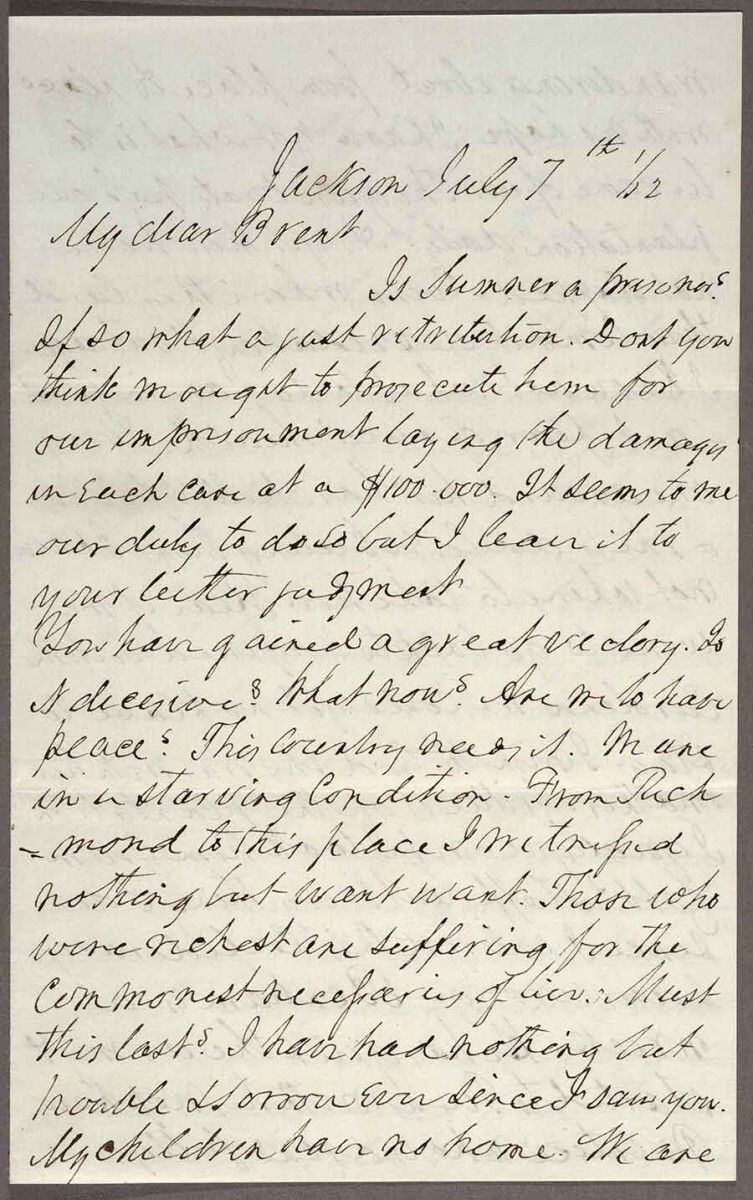 Jackson July 7th 1/62
My dear Brent
Is Sumner a prisoner?
If so what a just retribution. Dont you
think we ought to prosecute him for
our imprisonment laying the damages
in each case at a $100.000. It seems to me
our duty to do so but I leave it to
your better judgment
You have gained a great victory. Is
it decisive? What now? Are we to have
peace? This Country needs it. We are
in a starving Condition. From Rich
= mond to this place I witnessed
nothing but want want. Those who
were richest are suffering for the
Commonest necessaries of live. Must
this last? I have had nothing but
trouble & sorrow Ever since I saw you.
My children have no home. We are